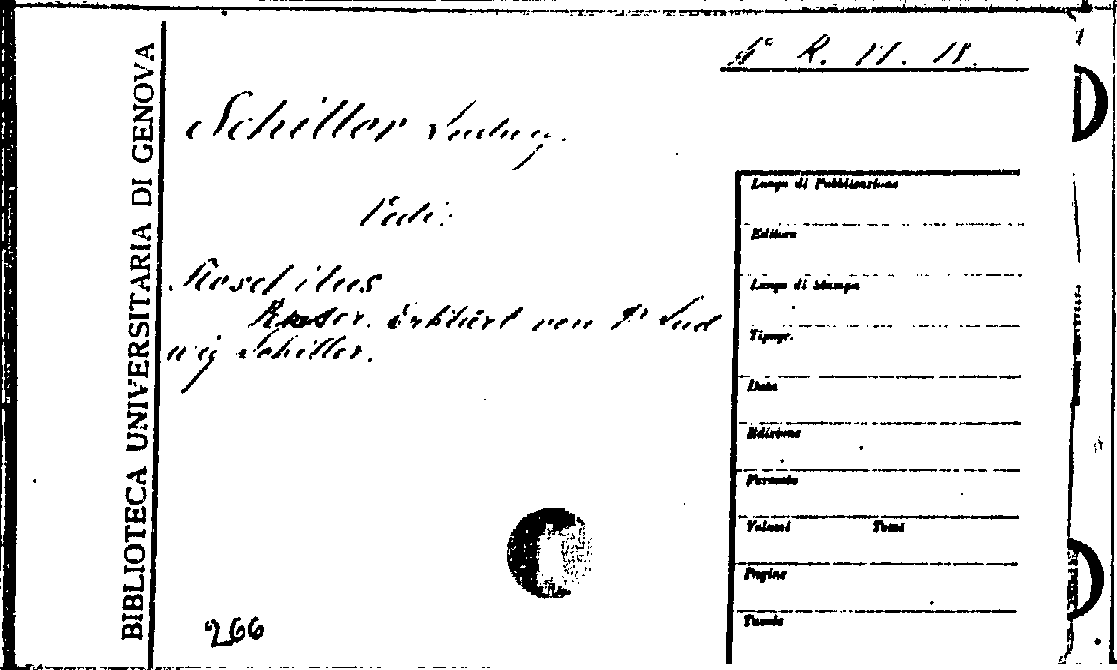 BIBLIOTECA UNIVERSITARIA DI GENOVA
R. 11. 18.
Schiller Ludwig.
Vedi:
Perser. Erklärt von Lud
wig Schiller.
Luogo di Pubblicazione
Editore
Luogo di Stampa
Tipogr.
Data
Edizione
Formato
Volumi Tomi
Pagine
Tavole
266